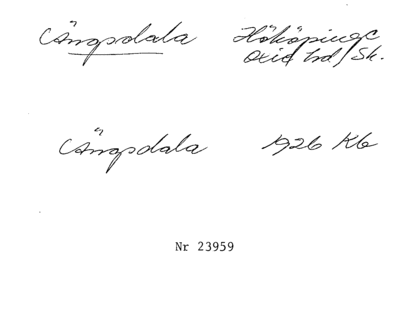 Ängsdala Hököpinge
Oxie hd/Sk.
Ängsdala 1926 Kb
Nr 23959